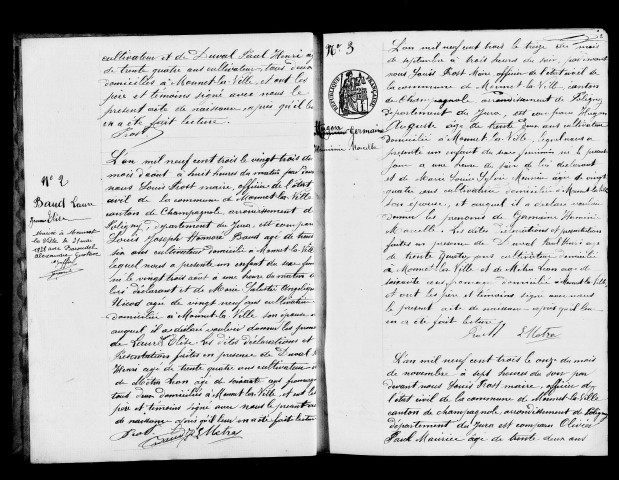 cultivateur et de Duval Paul Henri
de trente quatre ans cultivateur tous deux
domiciliés à Monnet-la-Ville et ont les
père et témoins signé avec nous le
présent acte de naissance, après qu'il leur
en a été fait lecture
Frost
N° 2
Baud Laure
Elise
L'an mil neuf cent trois le vingt trois du
mois d'août à huit heures du matin par devant
nous Louis Frost maire, officier de l'état
civil de la commune de Monnet-la-Ville
canton de Champagnole, arrondissement de
Poligny, département du Jura, est comparu
Louis Joseph Honnoré Baud age de trente
six ans cultivateur domicilié à Monnet-la-Ville
lequel nous a présenté un enfant du sexe
le vingt trois août à une heure du matin
déclarant et de Marie
Nicod agée de vingt neuf ans cultivatrice
domiciliée à Monnet-la-Ville son épouse
auquel il a déclaré vouloir donner les prénoms
de Laure Elise les dites déclarations et
présentations faites en présence de Duval
Henri age de trente quatre ans cultivateur
de Métra Léon age de soixante ans
tous deux domiciliés à Monnet-la-Ville et ont les
père et témoins signé avec nous le présent acte
de naissance après qu'il leur en a été fait lecture
Frost Baud Métra
N° 3
RÉPUBLIQUE FRANÇAISE
Germaine
Marcelle
L'an mil neuf cent trois le treize du mois
de septembre à trois heures du soir par devant
nous Louis Frost Maire officier de l'état civil de
la commune de Monnet-la-Ville, canton
de Champagnole arrondissement de Poligny
Département du Jura, est comparu
Auguste âgé de trente un ans cultivateur
domicilié à Monnet la Ville, lequel nous a
présenté un enfant du sexe féminin né le présent
jour à une heure du soir de lui déclarant
et de Marie Louise agée de vingt
quatre ans cultivatrice domiciliée à Monnet-la-Ville
son épouse, et auquel il a déclaré vouloir
donner les prénoms de Germaine
Marcelle. Les dites déclarations et présentations
faites en présence de Duval Paul Henri age
de trente quatre ans cultivateur domicilié
à Monnet-la-Ville et de Métra Léon age de
soixante ans domicilié à Monnet-la-Ville
et ont les père et témoins signé avec nous
le présent acte de naissance après qu'il leur
en a été fait lecture
Frost Métra
L'an mil neuf cent trois le onze du mois
de novembre à sept heures du soir par
devant nous Louis Frost maire, officier de
l'état civil de la commune de Monnet-la-Ville
canton de champagnole arrondissement de Poligny
département du Jura est comparu Olivier
Paul Maurice âgé de trente deux ans